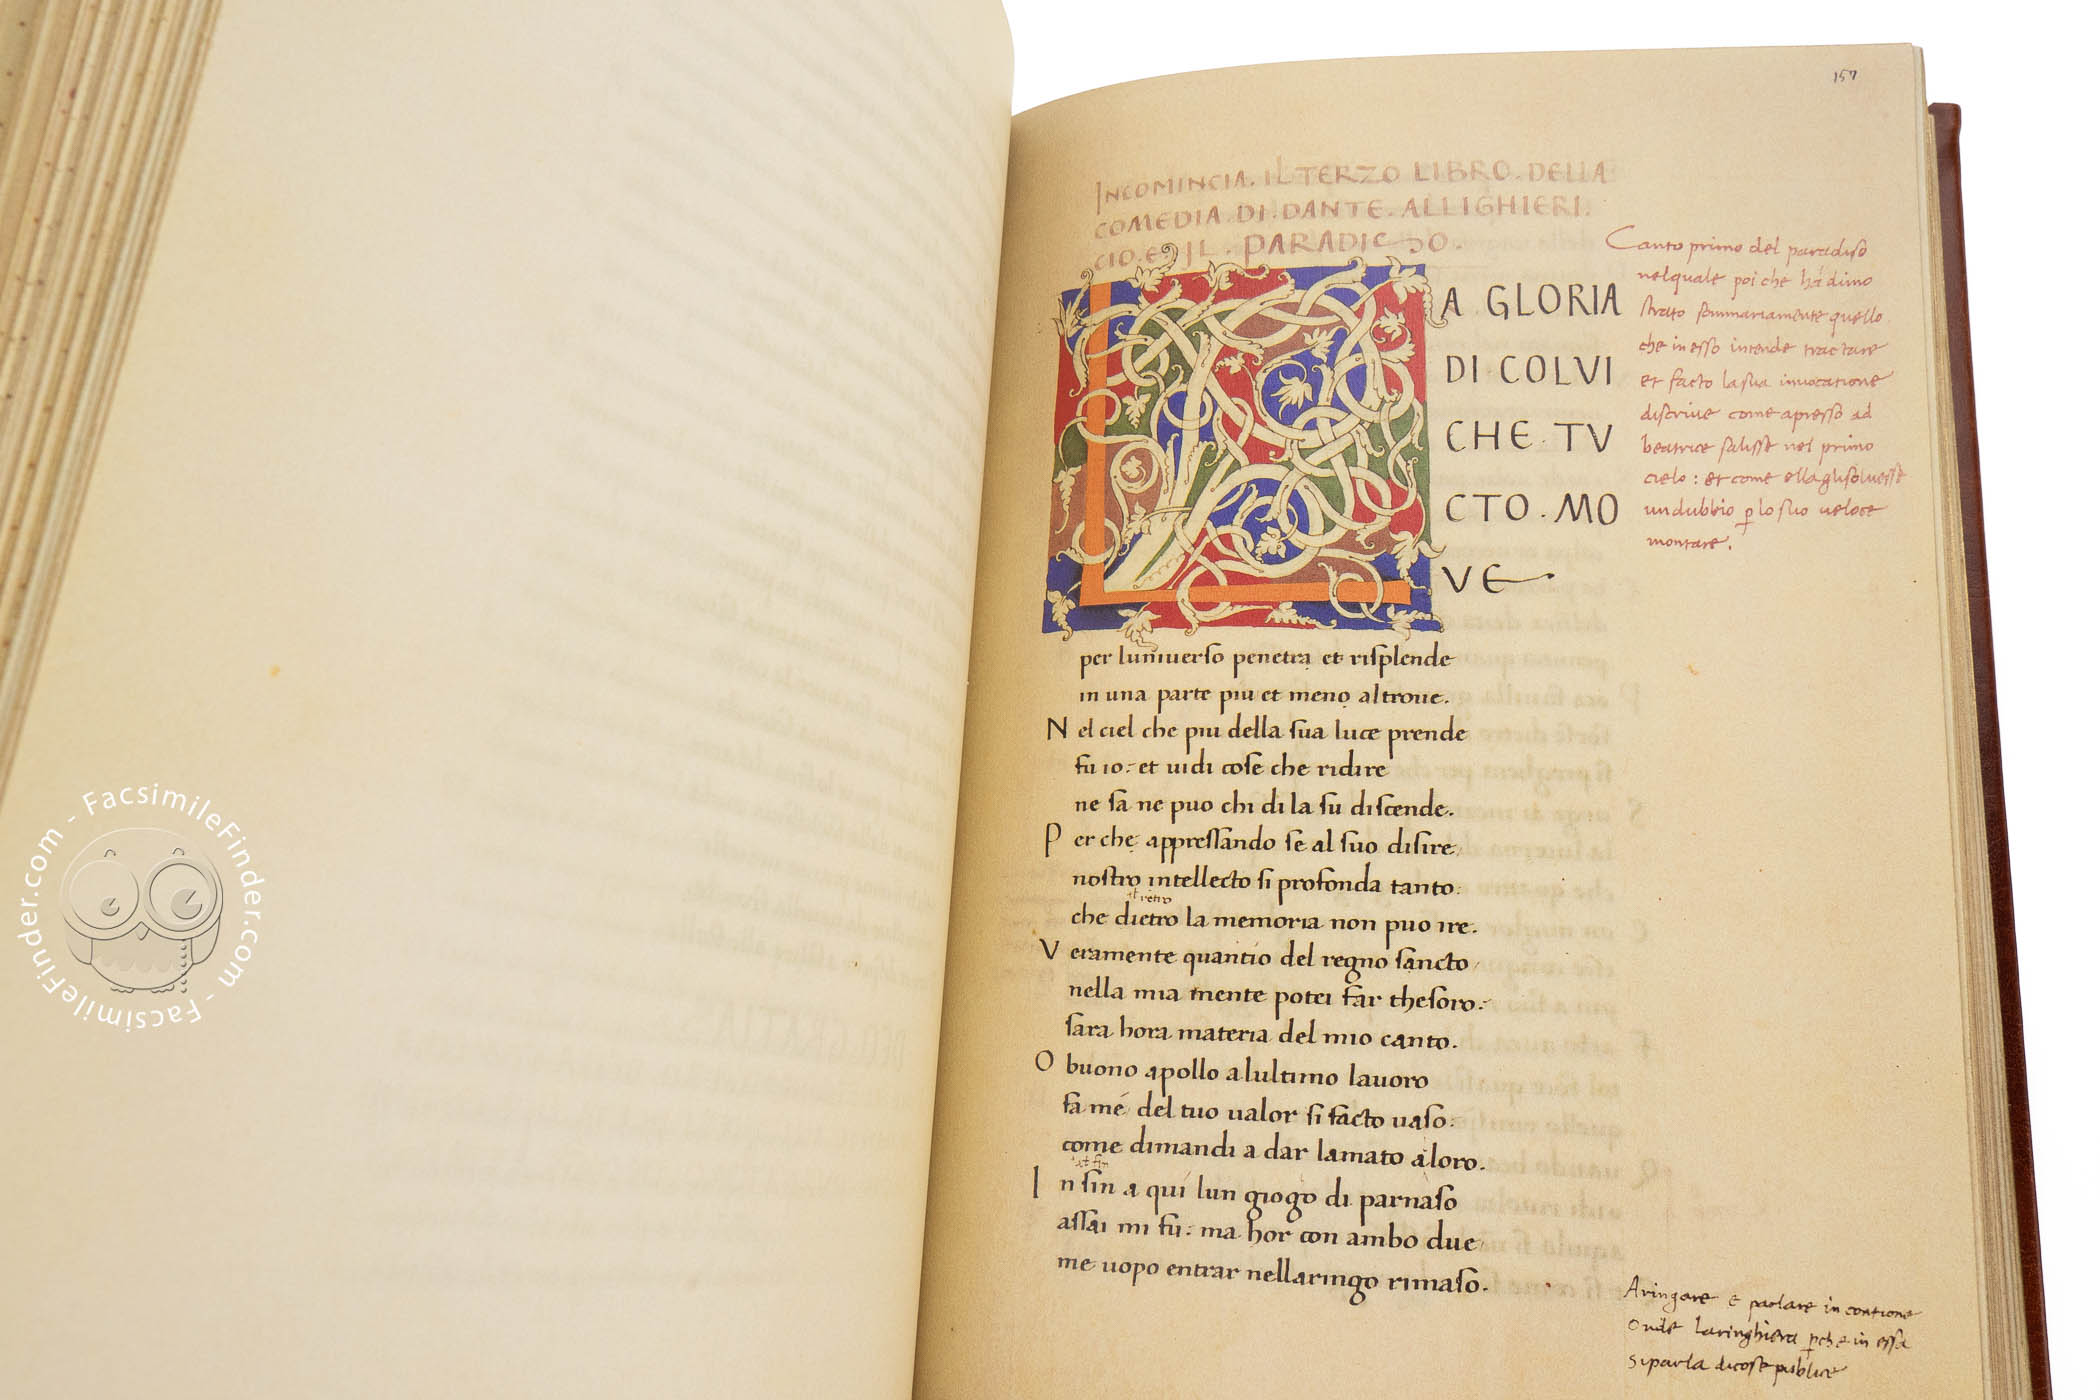 157
INCOMINCIA. IL TERZO LIBRO. DELLA
COMEDIA. DI. DANTE. ALLIGHIERI.
CIO. E. IL. PARADICSO.
LA GLORIA
DI COLVI
CHE. TV
CTO. MO
VE
per luniuerso penetra et risplende
in una parte piu et meno altroue.
N el ciel che piu della sua luce prende
fu io: et uidi cose che ridire
ne sa ne puo chi di la su discende.
P er che appressando se al suo disire
nostro intellecto si profonda tanto:
retro
che dietro la memoria non puo ire.
V eramente quantio del regno sancto
nella mia mente potei far thesoro:
sara hora materia del mio canto.
O buono apollo alultimo lauoro
fa mé del tuo ualor si facto uaso:
come dimandi a dar lamato aloro.
fin
I nsin a quí lun giogo di parnaso
assai mi fu: ma hor con ambo due
me uopo entrar nellaringo rimaso.
Canto primo del paradiso
nelquale poi che há dimo
strato sommariamente quello
che in esso intende tractare
et facto la sua inuocatione
discriue come apresso ad
beatrice salisse nel primo
cielo: et come ella gli soluesse
un dubbio p lo suo ueloce
montare.
Aringare e parlare in contione
Onde laringhiera pche in essa
si parla di cose publice
DEO GRATIA
FacsimileFinder.com - FacsimileFinder.com - FacsimileFinder.com